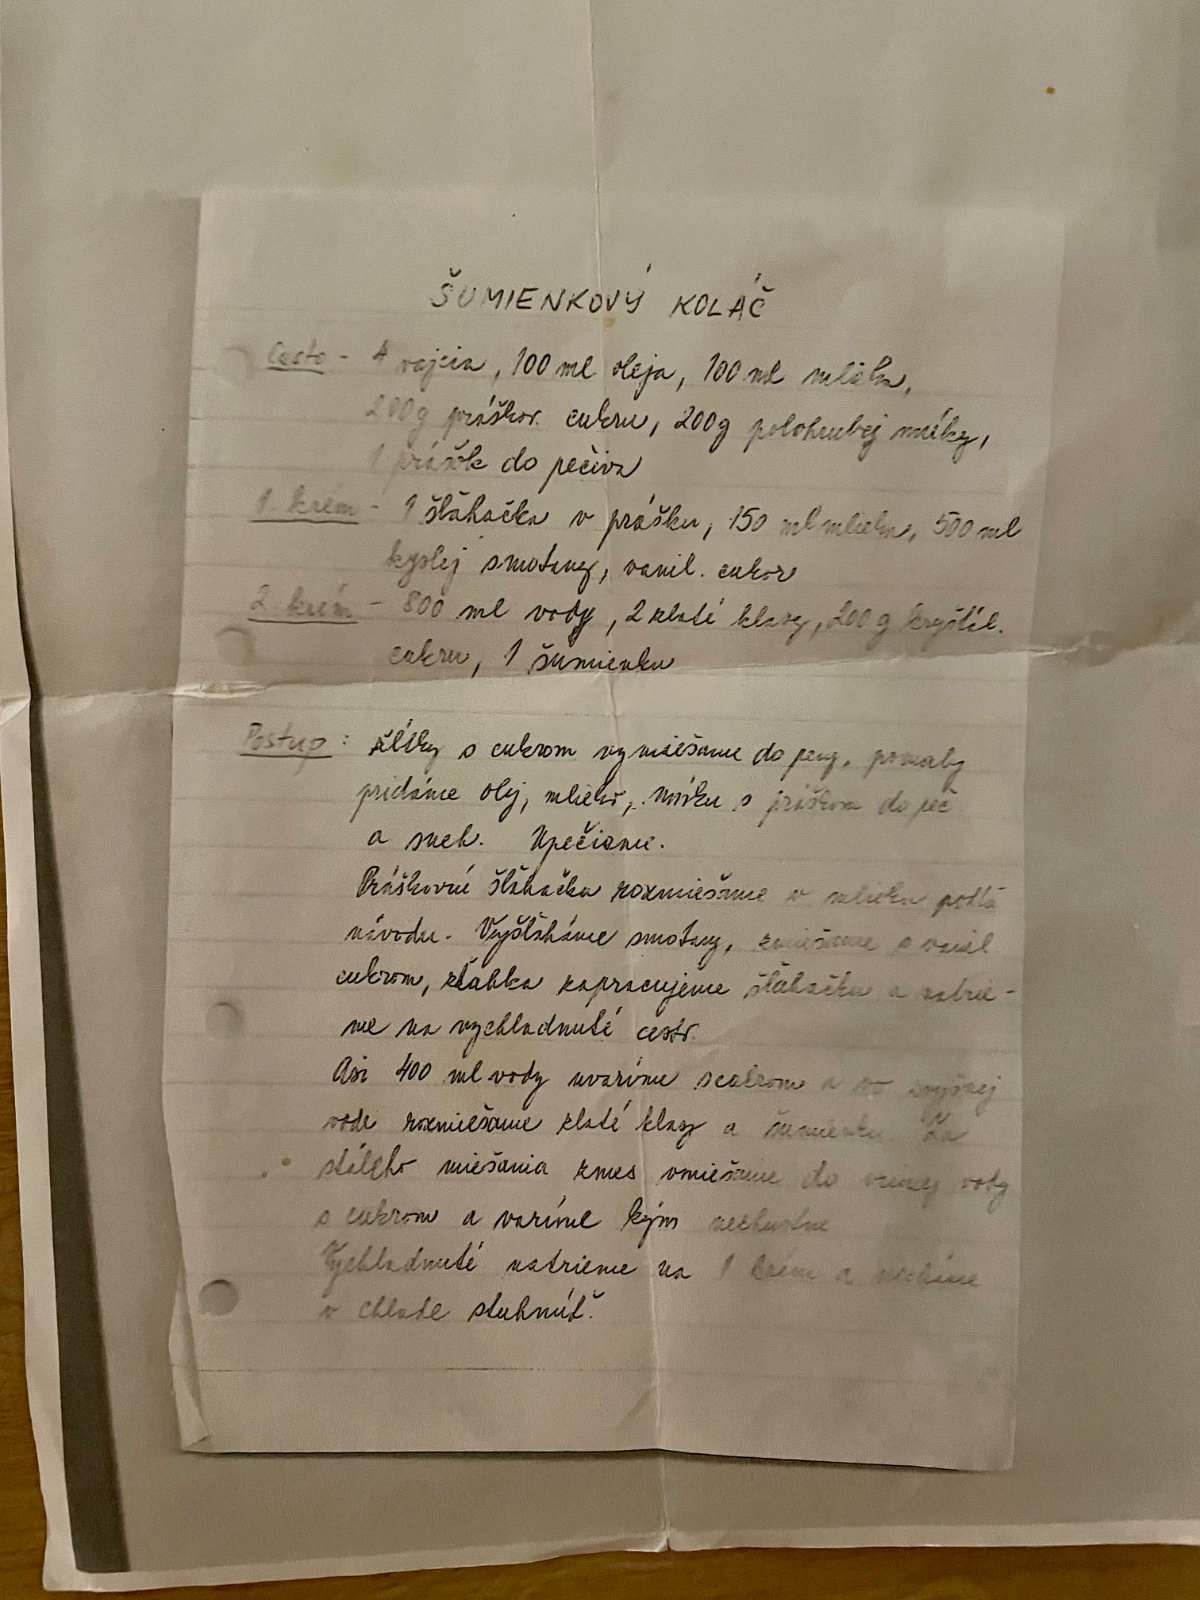 ŠUMIENKOVÝ KOLÁČ
Cesto - 4 vajcia, 100 ml oleja, 100 ml mlieka,
200g práškov. cukru, 200g polohrubej múky,
1 prášok do pečiva
1. krém - 1 šľahačka v prášku, 150 ml mlieka, 500 ml
kyslej smotany, vanil. cukor
2. krém - 800 ml vody, 2 zlaté klasy, 200 g kryštál.
cukru, 1 šumienka
Postup: žĺtky s cukrom vymiešame do peny, pomaly
pridáme olej, mlieko, múku s práškom do peč
a sneh. Upečieme.
Práškovú šľahačku rozmiešame v mlieku podľa
návodu. Vyšľaháme smotany, zmiešame s vanil.
cukrom, zľahka zapracujeme šľahačku a natrie-
me na vychladnuté cesto.
Asi 400 ml vody uvaríme s cukrom a vo zvyšnej
vode rozmiešame zlaté klasy a šumienku. Za
stáleho miešania zmes vmiešame do vriacej vody
s cukrom a varíme kým nezhustne
Vychladnuté natrieme na 1 krém a necháme
v chlade stuhnúť.